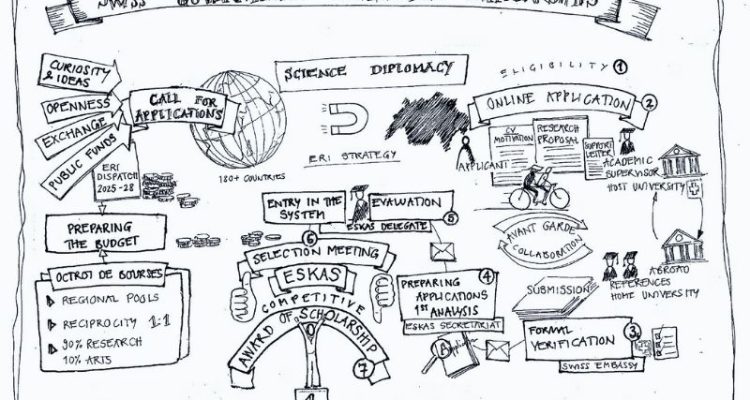 SWISS
CURIOSITY
& IDEAS
OPENNESS
EXCHANGE
PUBLIC FUNDS
ERI
DISPATCH
2025-28
CALL FOR
APPLICATIONS
180+ COUNTRIES
SCIENCE DIPLOMACY
ERI STRATEGY
ELIGIBILITY 1
ONLINE APPLICATION 2
CV
MOTIVATION
RESEARCH
PROPOSAL
SUPPORT
LETTER
APPLICANT
ACADEMIC
SUPERVISOR
HOST UNIVERSITY
AVANT GARDE
COLLABORATION
ABROAD
REFERENCES
HOME UNIVERSITY
SUBMISSION
FORMAL
VERIFICATION 3
SWISS EMBASSY
PREPARING
APPLICATIONS
1ST ANALYSIS
4
ESKAS SECRETARIAT
EVALUATION
5
ESKAS DELEGATE
ENTRY IN THE
SYSTEM
6
SELECTION MEETING
ESKAS
COMPETITIVE
AWARD OF SCHOLARSHIP
7
PREPARING
THE BUDGET
OCTROI DE BOURSES
REGIONAL POOLS
RECIPROCITY 1:1
90% RESEARCH
10% ARTS